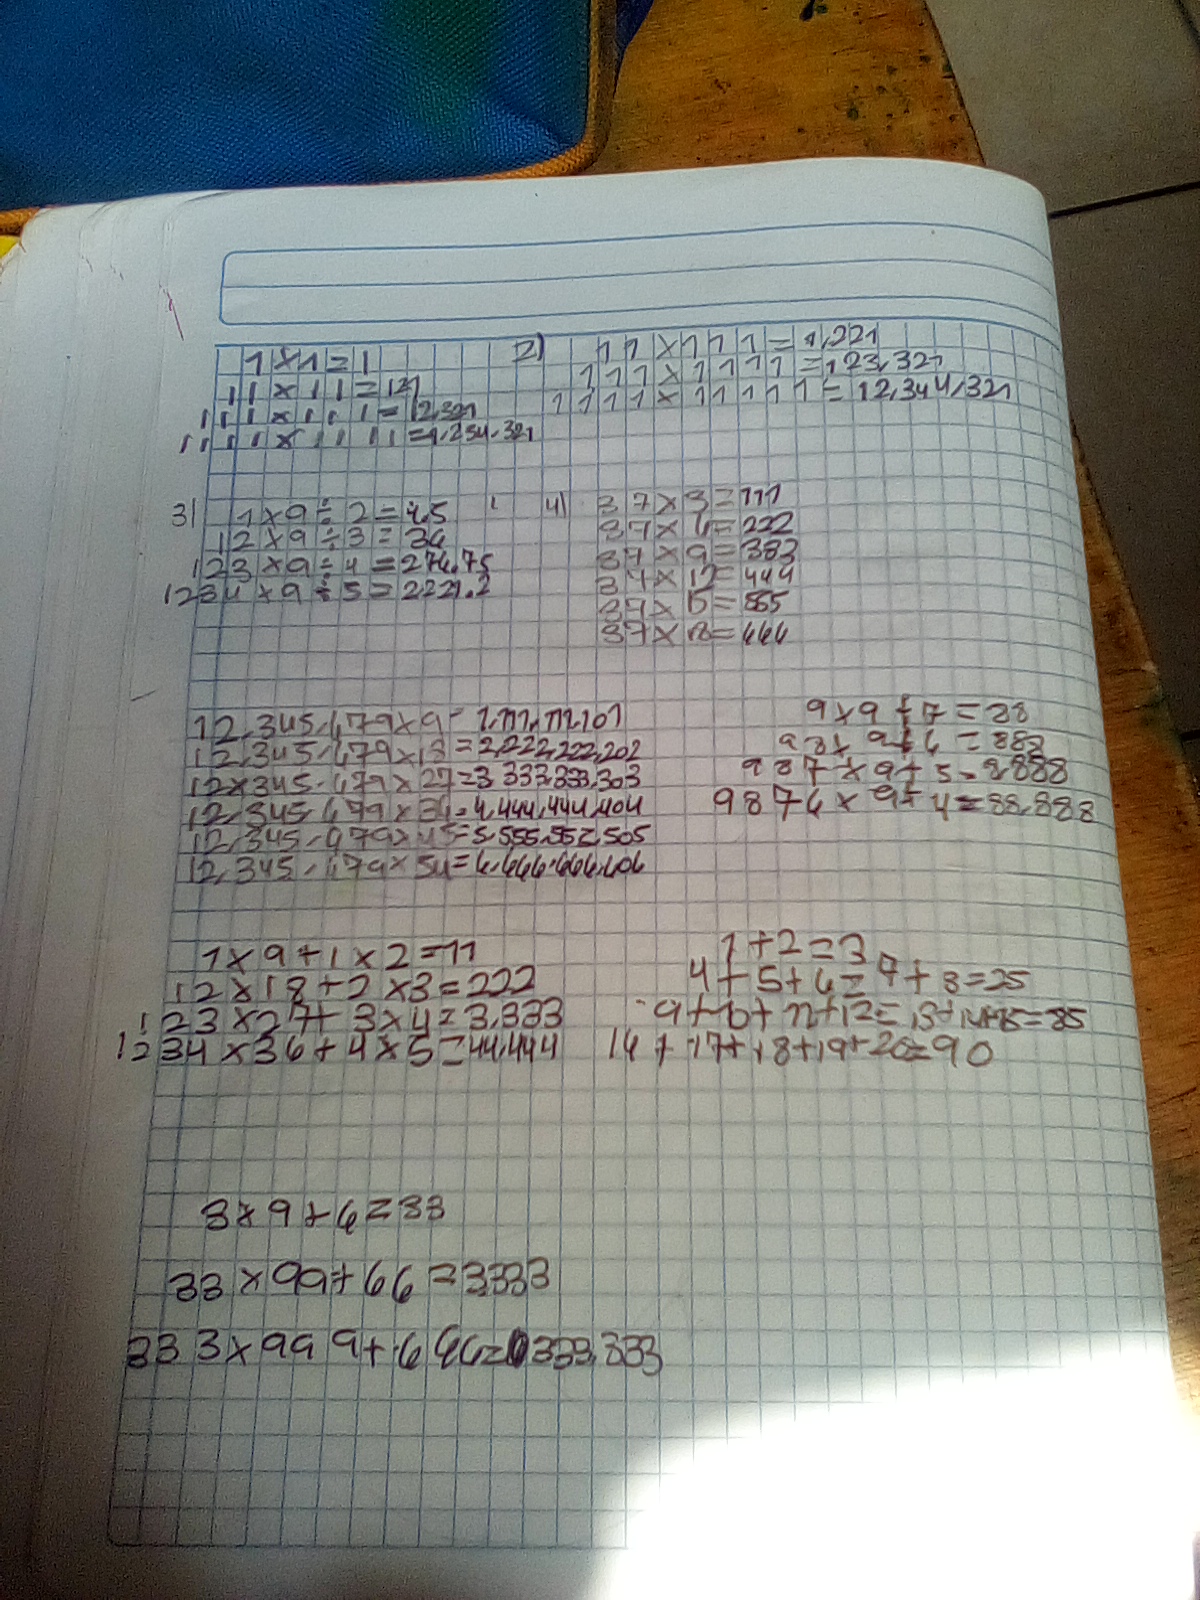 1×1=1
11×11=121
111×111=12,321
1111×1111=1,234,321
2) 11×111=1,221
111×1111=123,321
1111×11111=12,344,321
3) 1×9÷2=4.5
12×9÷3=36
123×9÷4=276.75
1234×9÷5=2221.2
4) 37×3=111
37×6=222
37×9=333
37×12=444
37×15=555
37×18=666
12,345,679×9=1,111,111,101
12,345,679×18=2,222,222,202
12×345,679×27=3,333,333,303
12,345,679×36=4,444,444,404
12,345,679×45=5,555,555,505
12,345,679×54=6,666,666,606
9×9+7=88
98×9+6=888
987×9+5=8,888
9876×9+4=88,888
1×9+1×2=11
12×18+2×3=222
123×27+3×4=3,333
1234×36+4×5=44,444
1+2=3
4+5+6=7+8=25
9+10+11+12=13+14+15=85
16+17+18+19+20=90
3×9+6=33
33×99+66=3333
333×999+666=333,333